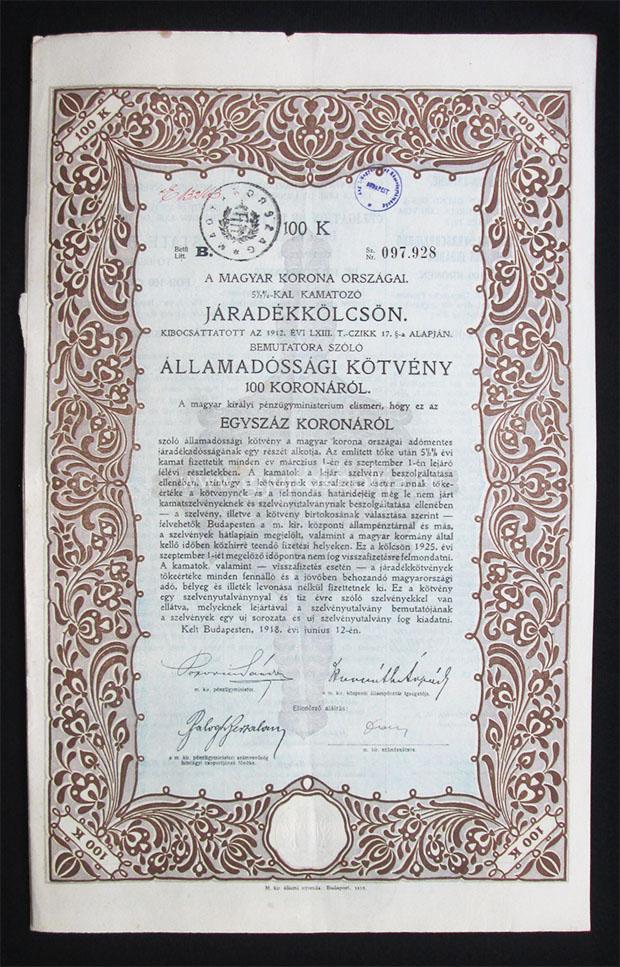 100 K
100 K
MAGYARORSZÁG
BUDAPEST
100 K
Betű
Litt.
B.
Sz.
Nr.
097.928
A MAGYAR KORONA ORSZÁGAI.
5½%-KAL KAMATOZÓ
JÁRADÉKKÖLCSÖN.
KIBOCSÁTTATOTT AZ 1912. ÉVI LXIII. T.-CZIKK 17. §-a ALAPJÁN.
BEMUTATÓRA SZÓLÓ
ÁLLAMADÓSSÁGI KÖTVÉNY
100 KORONÁRÓL.
A magyar királyi pénzügyministerium elismeri, hogy ez az
EGYSZÁZ KORONÁRÓL
szóló államadóssági kötvény a magyar korona országai adómentes
járadékadósságának egy részét alkotja. Az említett tőke után 5½% évi
kamat fizettetik minden év márczius 1-én és szeptember 1-én lejáró
félévi részletekben. A kamatok a lejárt szelvény beszolgáltatása
ellenében, úgy a kötvénynek visszafizetése esetén annak tőke-
értéke a kötvénynek és a felmondás határidejéig még le nem járt
kamatszelvényeknek és szelvényutalványnak beszolgáltatása ellenében
— a szelvény, illetve a kötvény birtokosának választása szerint —
felvehetők Budapesten a m. kir. központi állampénztárnál és más,
a szelvények hátlapjain megjelölt, valamint a magyar kormány által
kellő időben közhírré teendő fizetési helyeken. Ez a kölcsön 1925. évi
szeptember 1-jét megelőző időpontra nem fog visszafizetésre felmondatni.
A kamatok, valamint — visszafizetés esetén — a járadékkötvények
tőkeértéke minden fennálló és a jövőben behozandó magyarországi
adó, bélyeg és illeték levonása nélkül fizettetnek ki. Ez a kötvény
egy szelvényutalvánnyal és tíz évre szóló szelvényekkel van
ellátva, melyeknek lejártával a szelvényutalvány bemutatójának
a szelvények egy uj sorozata és uj szelvényutalvány fog kiadatni.
Kelt Budapesten, 1918. évi junius 12-én.
m. kir. pénzügyminister.
a m. kir. központi állampénztár igazgatója.
Ellenőrző aláírás:
a m. kir. pénzügyministeri számvevőség
hitelügyi csoportjának főnöke.
m. kir. számtanácsos.
100 K
100 K
M. kir. állami nyomda. Budapest, 1918.